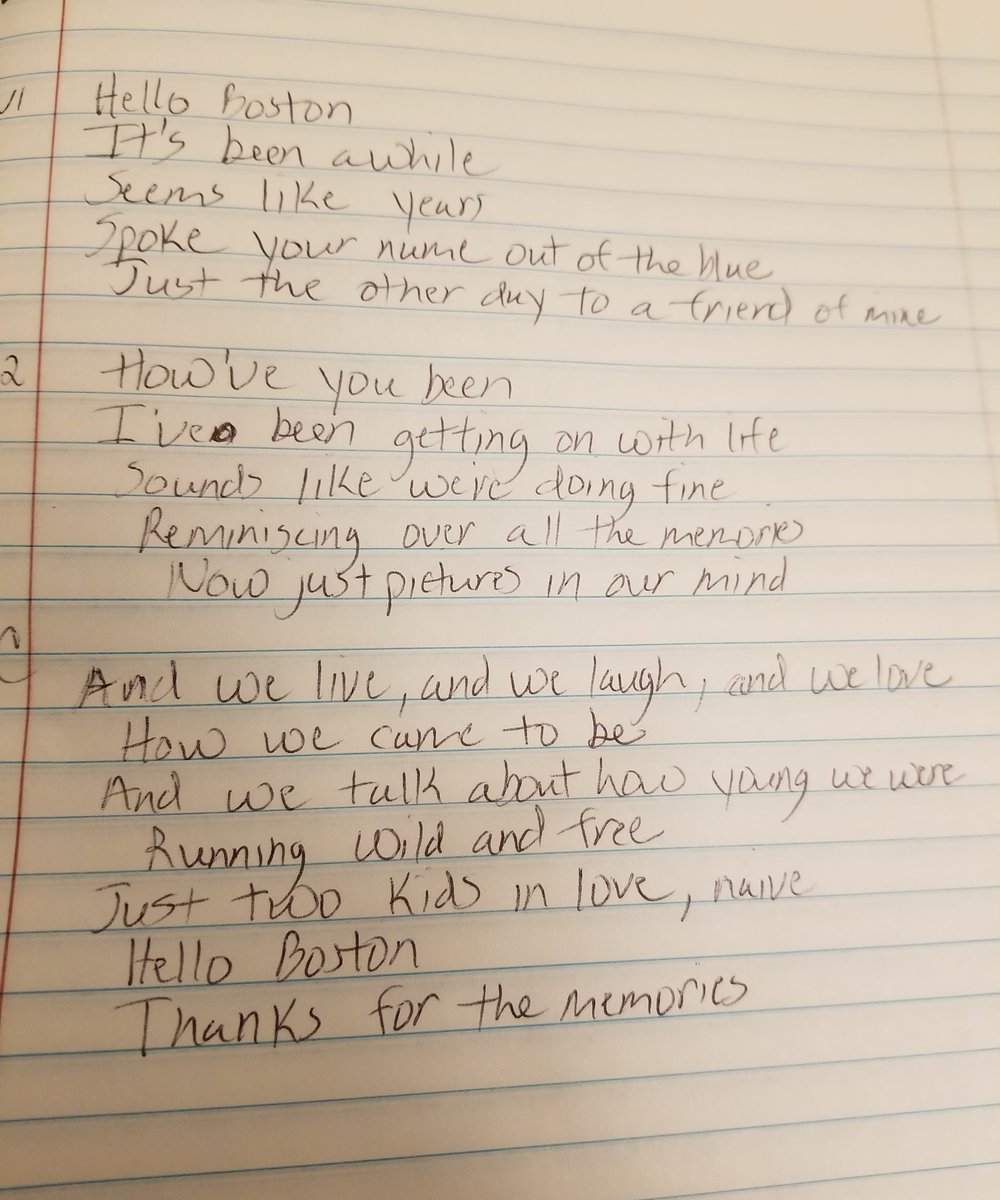 V1 Hello Boston
It's been awhile
Seems like years
Spoke your name out of the blue
Just the other day to a friend of mine
2 How've you been
I've been getting on with life
Sounds like we're doing fine
Reminiscing over all the memories
Now just pictures in our mind
And we live, and we laugh, and we love
How we came to be
And we talk about how young we were
Running wild and free
Just two kids in love, naive
Hello Boston
Thanks for the memories